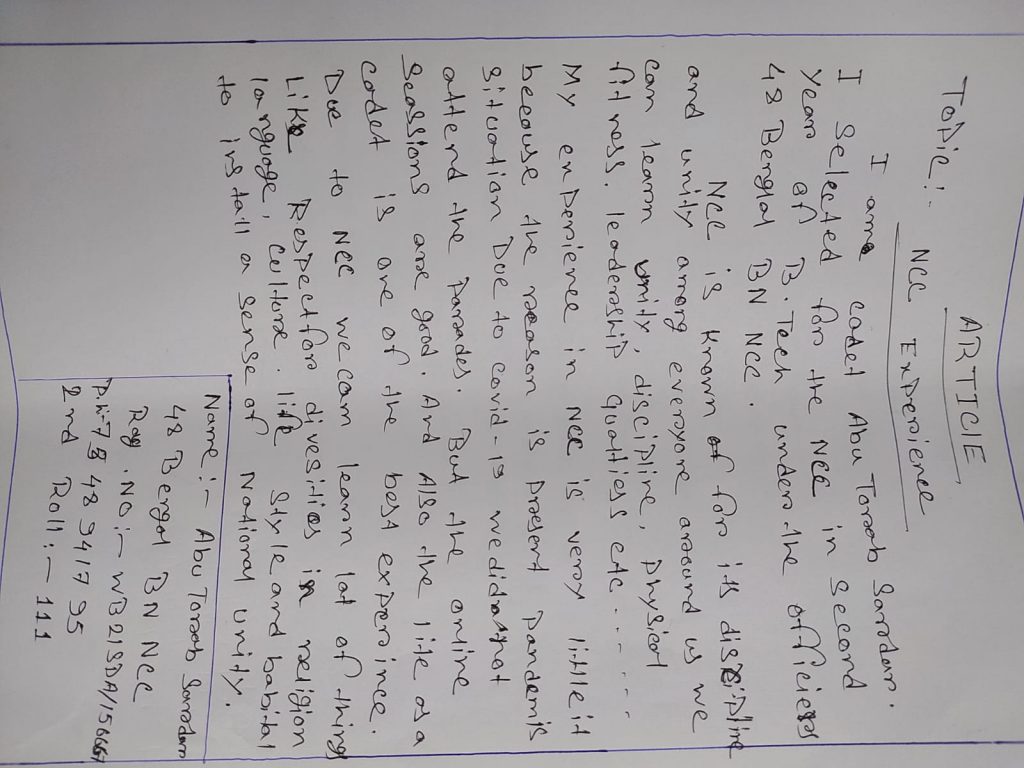 ARTICLE
Topic:- NCC Experience
I am cadet Abu Torab Sardar.
I Selected for the NCC in Second
year of B.Tech under the officiers
48 Bengal BN NCC.
NCC is known of for its discipline
and unity among everyone around us we
can learn unity, discipline, physical
fitness. leadership qualties etc......
My experience in NCC is very little it
because the reason is present pandemic
situation Due to covid-19 we did not
attend the parades. But the online
Seassions are good. And Also the life as a
cadet is one of the best experince.
Due to NCC we can learn lot of thing
Like Respect for divesities in religion
language, culture. life style and babital
to install a sense of National unity.
Name:- Abu Torab Sardar
48 Bengal BN NCC
Reg. No:- WB21SDA/
2nd Roll:- 111